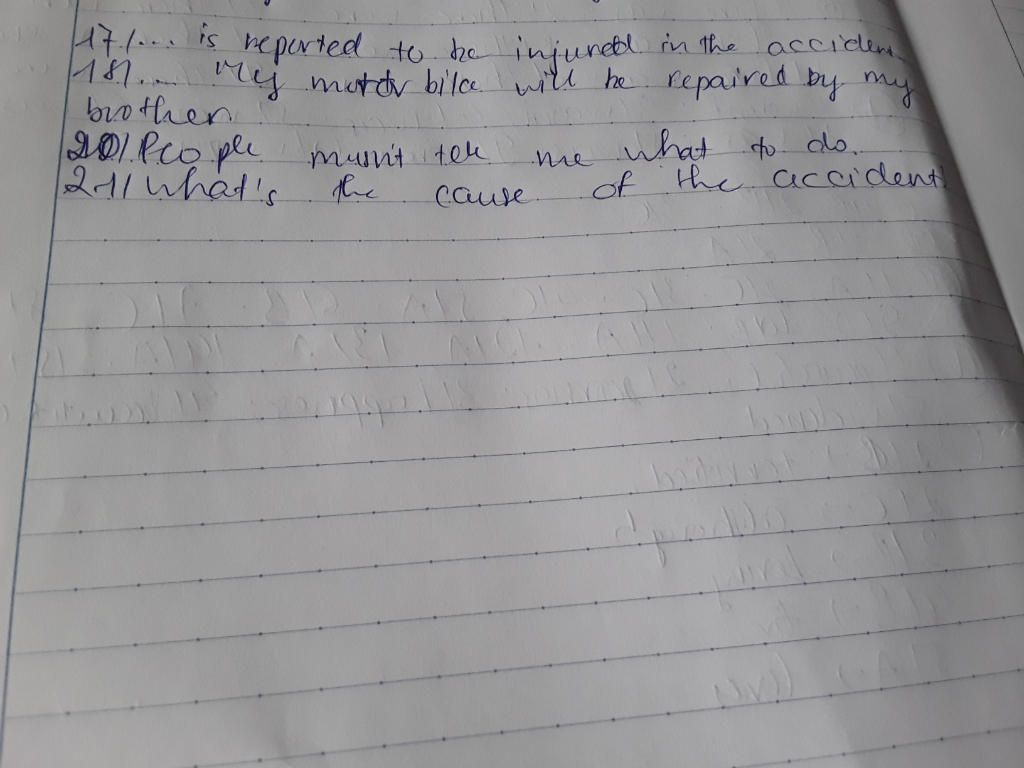 17/... is reported to be injured in the accident
18/... My motor bike will be repaired by my
brother
20/. People musn't tell me what to do.
21/ What's the cause of the accident